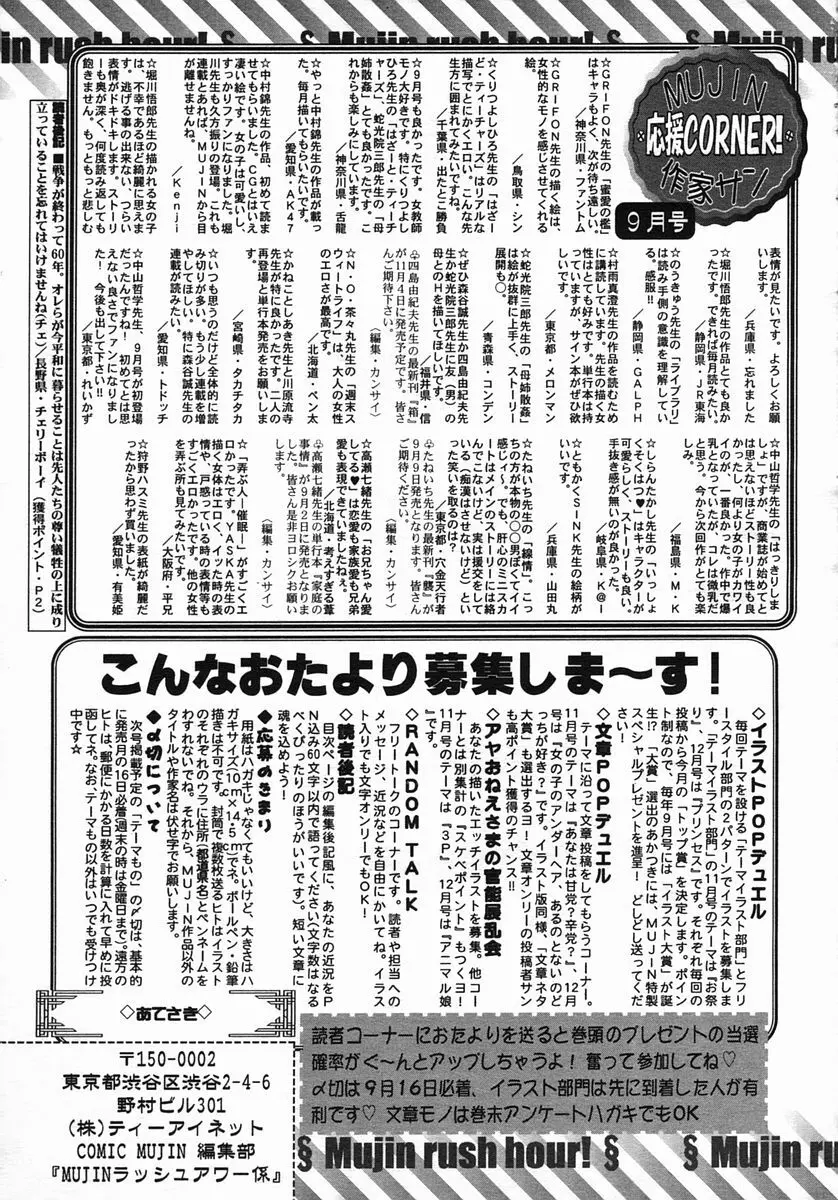 Mujin rush hour! §
§ Mujin rush hour! §
Muj
MUJIN
応援CORNER!
作家サン
9月号
☆GRIFON先生の「蜜愛の檻」
はキャラもよく、次が待ち遠しい。
／神奈川県・ファントム
☆GRIFON先生の描く絵は、
女性的なモノを感じさせてくれる
絵。
／鳥取県・シン
☆くりつよしひろ先生の「はざー
ど・ティーチャーズ」はリアルな
描写でとにかくエロい。こんな先
生方に囲まれてみたいですね。
／千葉県・出たとこ勝負
☆9月号も良かったです。女教師
モノ大好きです。特にくりつよし
ひろ先生の「はざーど・ティーチ
ャーズ」と、蛇光院三郎先生の「母
姉散姦」とても良かったです。こ
れからも楽しみにしています。
／神奈川県・舌龍
☆やっと中村錦先生の作品が載っ
た。毎月描いてもらいたいです。
／愛知県・AK47
☆中村錦先生の作品、初めて読ま
せてもらいました。CGではない
凄い絵です。女の子は可愛いし、
すっかりファンになりました。堀
川先生も久方振りの登場。これも
連載とあれば、MUJINから目
が離せませんね。
／Kenji
☆堀川悟郎先生の描かれる女の子
は、不幸であるほど綺麗に思えま
す。逃げる事の出来ない、つらい
表情がドキドキします。ストーリ
ーも奥が深く、何度読み返しても
飽きません。もっともっと悲しむ
表情が見たいです。よろしくお願
い。
／兵庫県・忘れました
☆堀川悟郎先生の作品とても良か
ったです。できれば毎月読みたい。
／静岡県・JR東海
☆のうきゅう先生の「ライブラリ」
は読み手側の意識を理解してい
る。感服!!
／静岡県・GALPH
☆村雨真澄先生の作品を読むため
に講読しています。先生の描く女
性はとても好みです。単行本は持
っていますが、サイン本がぜひ欲
しいです。
／東京都・メロンマン
☆蛇光院三郎先生の「母姉散姦」
は絵が抜群に上手く、ストーリー
展開も○。
／青森県・コンデン
☆ぜひ森谷誠先生か四島由紀夫先
生か蛇光院三郎先生に友（男）の
母とのHを描いていほしいです。
／福井県・信
♧四島由紀夫先生の最新刊『箱』
が11月4日に発売予定です。皆さ
んご期待下さい。
（編集・カンサイ）
☆N・O・茶々丸先生の「週末ス
ウィートライフ」は、大人の女性
のエロさが最高です。
／北海道・ペン太
☆かねことしあき先生と川原流寺
先生が特に良かったです。二人の
再登場と単行本発売をお願いしま
す。
／宮崎県・タカチタカ
☆いつも思うのだけど全体的に読
み切りが多い。もう少し連載を増
やしてほしい。特に森谷誠先生の
連載が読みたい。
／愛知県・トドッチ
☆中山哲学先生、9月号が初登場
だったんですね！初めてとは思
えない良さでファンになりまし
た！今後も出して下さい!!
／東京都・れいかず
☆中山哲学先生の「はっきりしま
しょ」ですが、商業誌が始めてと
は思えないほどストーリー性も良
かったし、何より女の子がカワイ
イのが、一番良かった。作中で爆
乳となっていたが、コレは微乳だ
と思う。今から次回作がとても楽
しみ。
／福島県・M・K
☆しらんたかし先生の「いっしょ
くそくはつ♥」はキャラクターが
可愛らしく、ストーリーも良い。
手抜き感が無いのが良かった。
／岐阜県・K@I
☆ともかくSINK先生の絵柄が
イイ。
／兵庫県・山田丸
☆たねいち先生の「線情」。こっ
ちの方が本物の○○男ぽくてイイ
感じィ～。でも、肝心のミニスカ
ートはメインのストーリーには絡
んでこないけど、実は援交をして
いる（痴漢はさせないけど）とい
った笑いを取るのは？
／東京都・穴金天行者
♧たねいち先生の最新刊『襲』が
9月9日発売となります。皆さん
ご期待ください。
（編集・カンサイ）
☆高瀬七緒先生の「お兄ちゃん愛
してる♥」は恋愛も家族愛も兄弟
愛も表現できていましたね。
／北海道・考えすぎる葦
♧高瀬七緒先生の単行本『家庭の
事情』が9月2日に発売となりま
した。皆さん是非ヨロシクお願い
します。
（編集・カンサイ）
☆「弄ぶ人―催眠―」がすごくエ
ロかったです。YASKA先生の
描く女体はエロく、イッた時の表
情や、戸惑っている時の表情等も
すごくエロかったです。他の女性
を弄ぶ所も見てみたいです。
／大阪府・平兄
☆狩野ハスミ先生の表紙が綺麗だ
ったから思わず買いました。
／愛知県・有美姫
読者後記 ■戦争が終わって60年。オレらが今平和に暮らせることは先人たちの尊い犠牲の上に成り
立っていることを忘れてはいけませんね（チェ）／長野県・チェリーボーイ（獲得ポイント・P2）
こんなおたより募集しま～す！
◇イラストPOPデュエル
毎回テーマを設ける「テーマイラスト部門」とフリ
ースタイル部門の2パターンでイラストを募集しま
す。「テーマイラスト部門」の11月号のテーマは『お祭
り』、12月号は『プリンセス』です。それぞれ毎回の
投稿から今月の「トップ賞」を決定します。ポイン
ト制なので、毎年9月号には「イラスト大賞」が誕
生!?「大賞」選出のあかつきには、MUJIN特製
スペシャルプレゼントを進呈！どしどし送ってくだ
さい！
◇文章POPデュエル
テーマに沿って文章投稿をしてもらうコーナー。
11月号のテーマは『あなたは甘党？辛党？』、12月
号は『女の子のアンダーヘア、あるのとないのど
っちが好き？』です。イラスト版同様、「文章ネタ
大賞」も選出するヨ！文章オンリーの投稿者サン
も高ポイント獲得のチャンス!!
◇アヤおねえさまの官能展乱会
あなたの描いたエッチイラストを募集。他コー
ナーとは別集計の「スケベポイント」もつくヨ！
11月号のテーマは『3P』、12月号は『アニマル娘
』です。
◇RANDOM TALK
フリートークのコーナーです。読者や担当への
メッセージ、近況などを自由にかいてね。イラス
ト入りでも文字オンリーでもOK！
◇読者後記
目次ページの編集後記風に、あなたの近況をP
N込み60文字以内で語ってください（文字数はなる
べくぴったりのほうがいいです）。短い文章に
魂を込めよう！
◆応募のきまり
用紙はハガキじゃなくてもいいけど、大きさはハ
ガキサイズ10㎝×14・5㎝でネ。ボールペン・鉛筆
描きは不可です。封筒で複数枚送るヒトはイラスト
のそれぞれのウラに住所（都道県名）とペンネームを
わすれないでね。それから、MUJIN作品以外の
タイトルや作家名は伏せ字でお願いします。
◆〆切について
次号掲載予定の「テーマもの」の〆切は、基本的
に発売月の16日必着（週末の時は金曜日まで）。遠方の
ヒトは、郵便にかかる日数を計算に入れて早めに投
函してネ。なお、テーマもの以外はいつでも受けつけ
中です☆
◇あてさき◇
〒150-0002
東京都渋谷区渋谷2-4-6
野村ビル301
（株）ティーアイネット
COMIC MUJIN 編集部
『MUJINラッシュアワー係』
読者コーナーにおたよりを送ると巻頭のプレゼントの当選
確率がぐ～んとアップしちゃうよ！奮って参加してね♡
〆切は9月16日必着、イラスト部門は先に到着した人が有
利です♡ 文章モノは巻末アンケートハガキでもOK
§ Mujin rush hour! §
§ Mujin ru